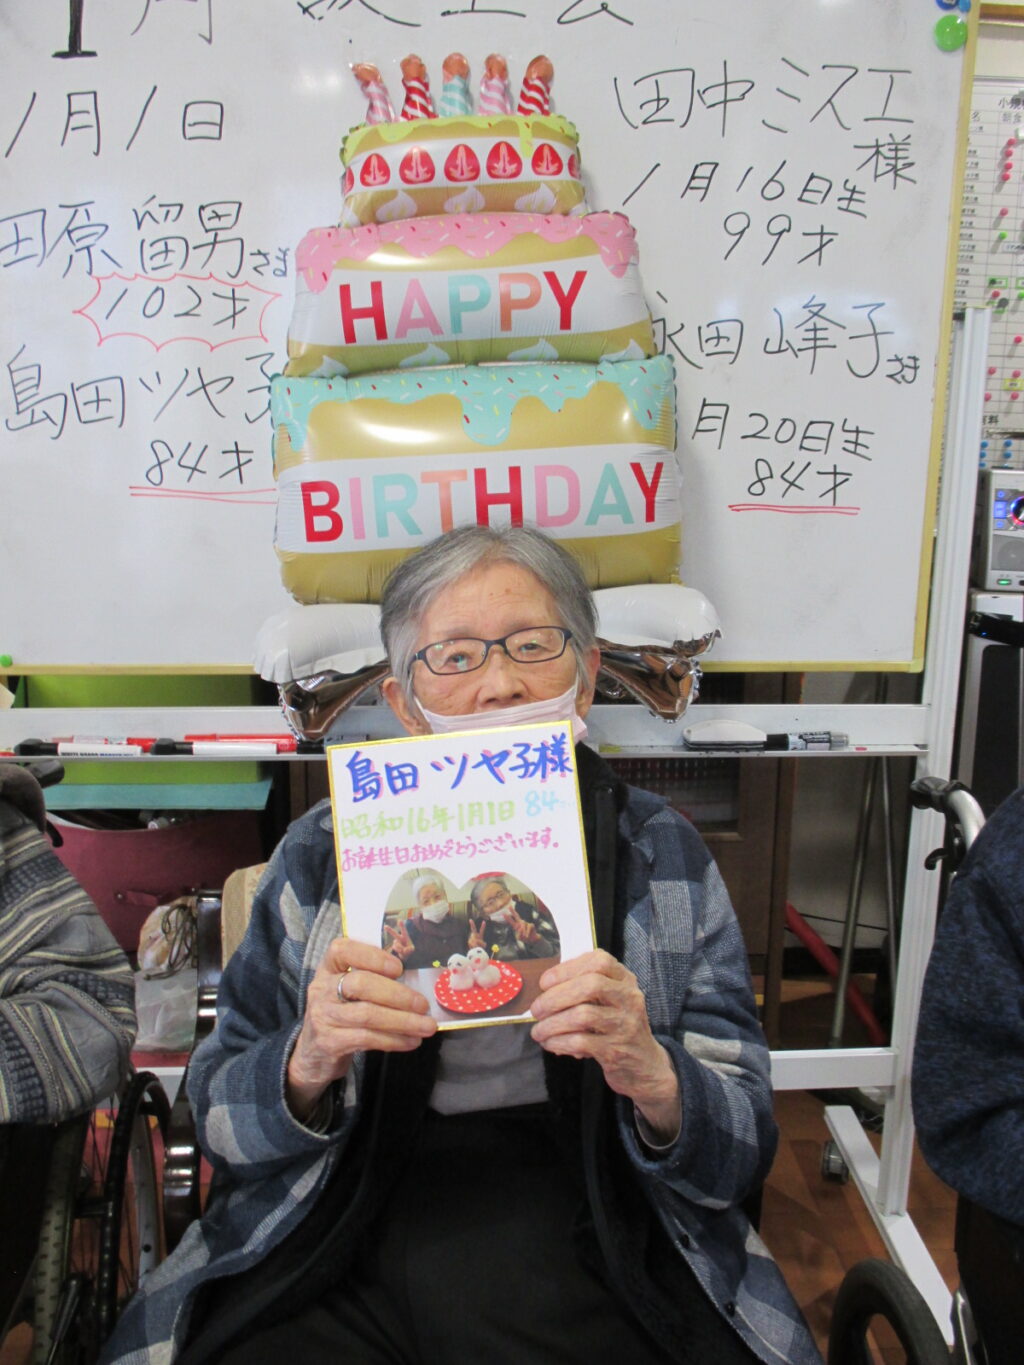 1月
1月1日
田原留男さん
102才
島田ツヤ子
84才
田中ミスエ
様
1月16日生
99才
永田峰子さま
月20日生
84才
HAPPY
BIRTHDAY
島田ツヤ子様
昭和16年1月1日 84
お誕生日おめでとうございます。